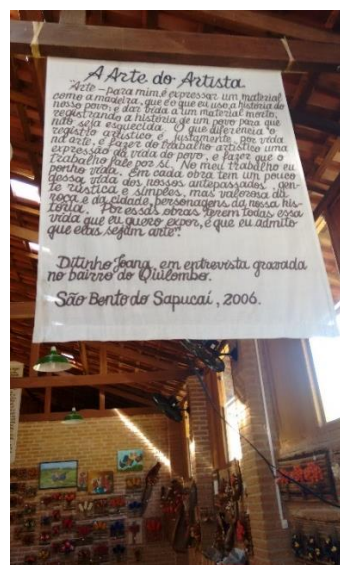 A Arte do Artista
"Arte - para mim é expressar um material
como a madeira, que é o que eu uso, a história do
nosso povo, é dar vida a um material morto,
registrando a história de um povo para que
não seja esquecida. O que diferencia o
registro artístico é, justamente, por vida
na arte, é fazer do trabalho artístico uma
expressão da vida do povo, e fazer que o
trabalho fale por si. No meu trabalho eu
ponho vida. Em cada obra tem um pouco
dessa vida dos nossos antepassados, gen-
te rústica e simples, mas valorosa da
roça e da cidade, personagens da nossa his-
tória. Por essas obras terem todas essa
vida que eu quero expor, é que eu admito
que elas sejam arte".
Ditinho Joana, em entrevista gravada
no bairro do Quilombo.
São Bento do Sapucaí, 2006.